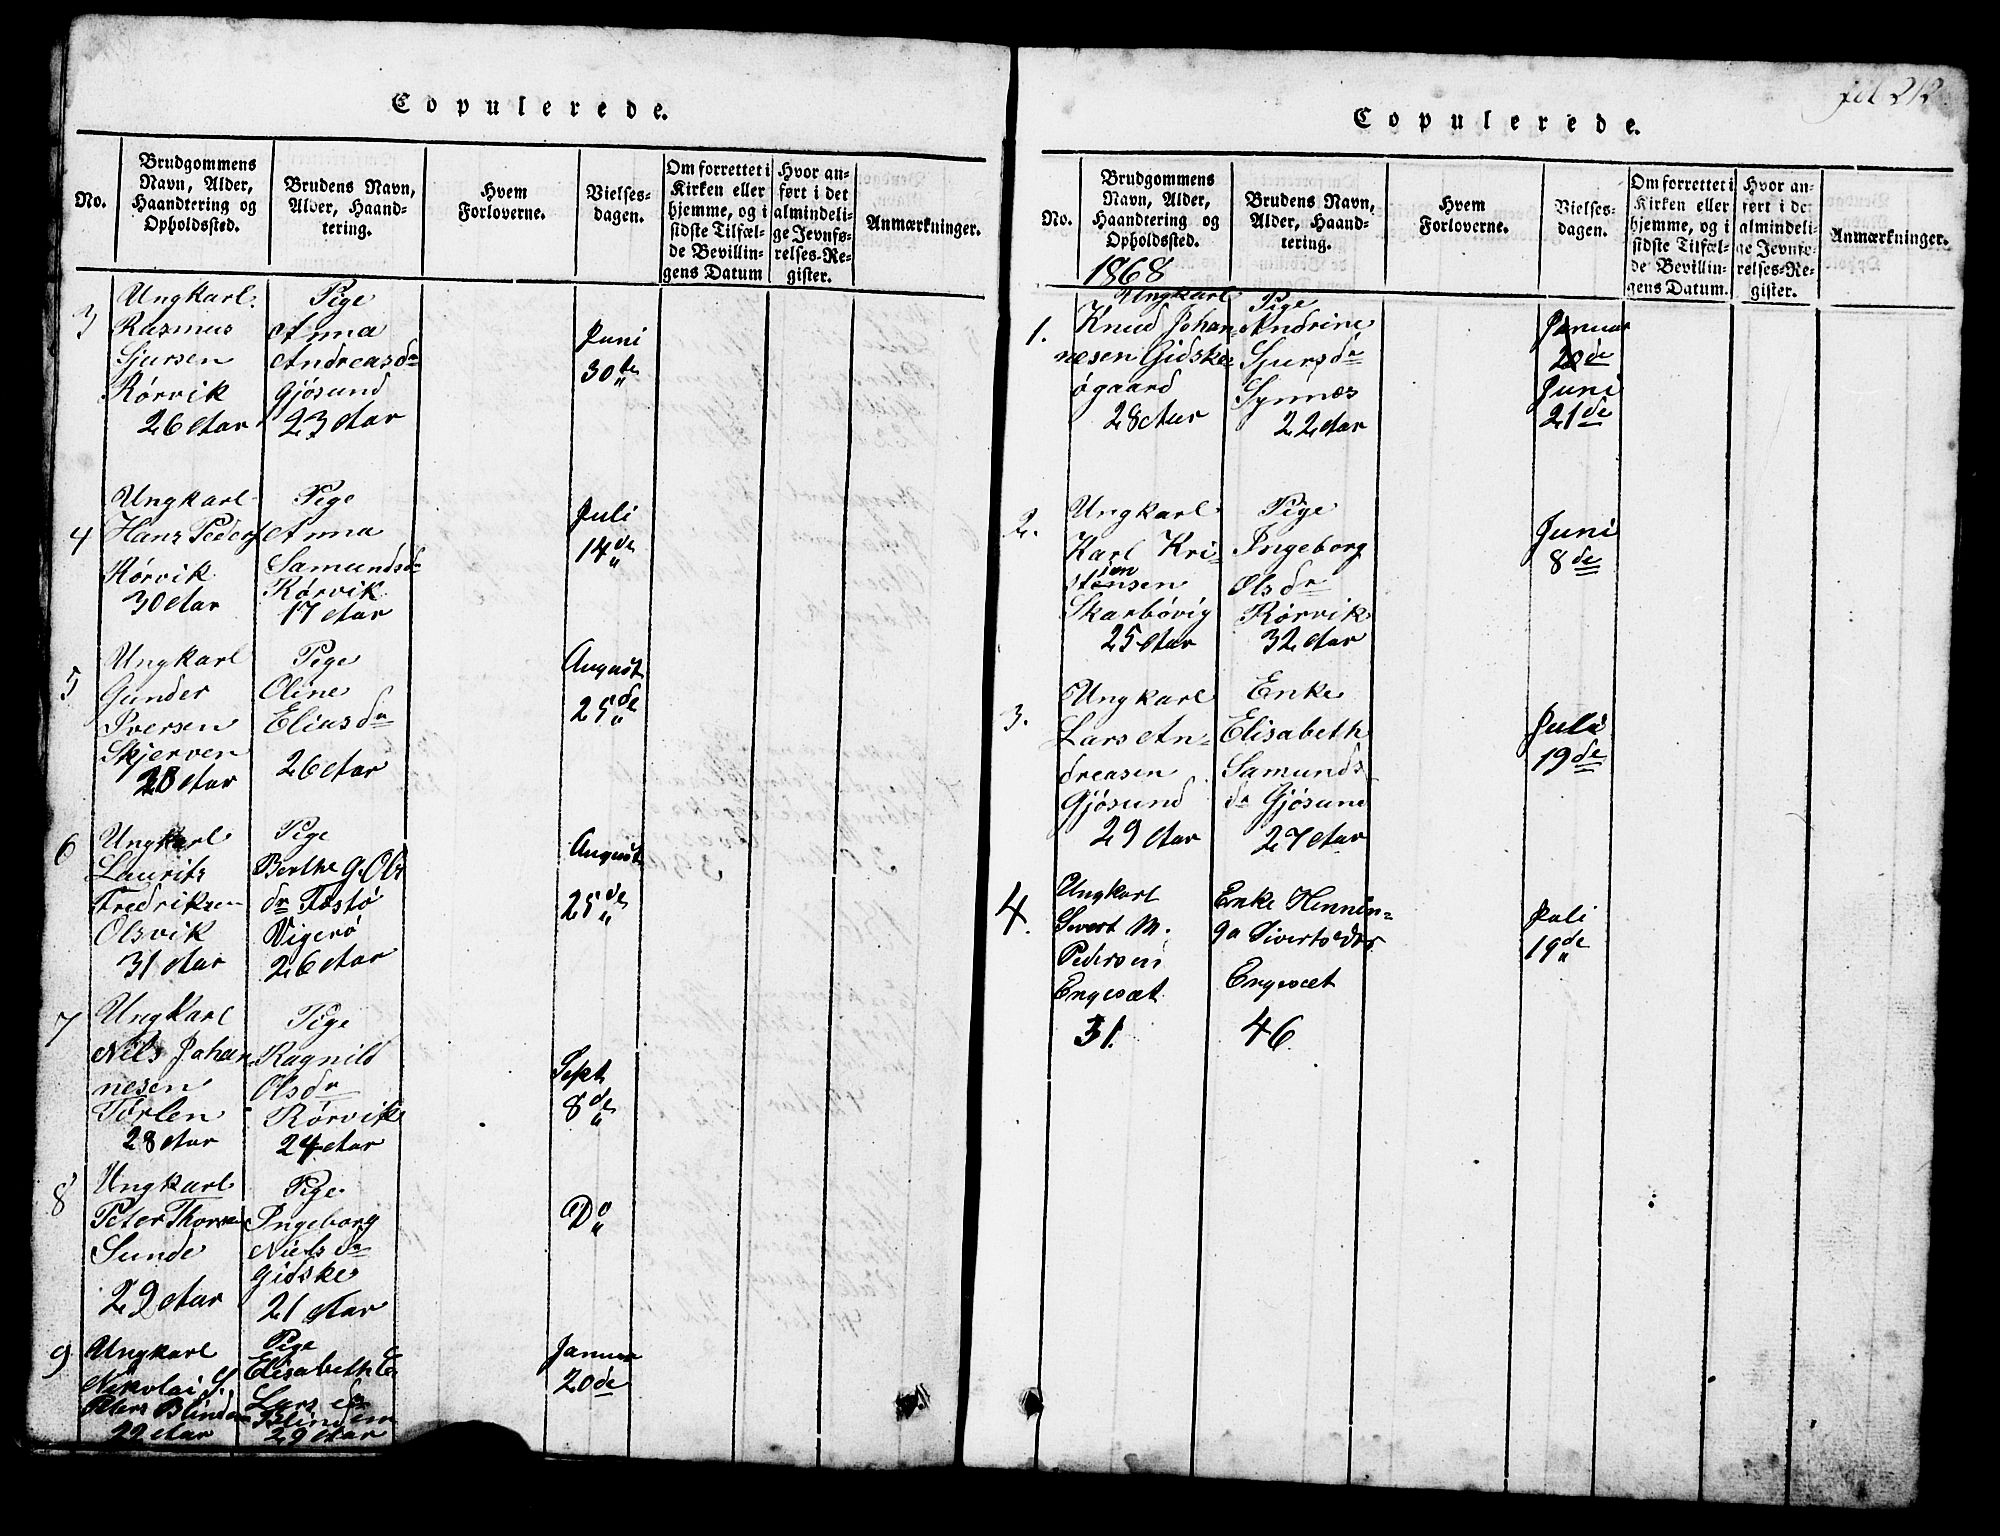 Copulerede.
No.
Brudgommens
Navn, Alder,
Haandtering og
Opholdssted.
Brudens Navn,
Alder, Haand-
tering.
Hvem
Forloverne.
Vielses-
dagen.
Om forrettet i
Kirken eller
hjemme, og i
sidste Tilfæl-
de Bevillin-
gens Datum
Hvor an-
ført i det
almindeli-
ge Jevnfø-
relses-Re-
gister.
Anmærkninger.
3
Ungkarl
Rasmus
Sjursen
Rørvik
26 Aar
Pige
Anna
Andreasdr
Gjøsund
23 Aar
Juni
30te
4
Ungkarl
Hans Peders
Rørvik
30 Aar
Pige
Anna
Samundsdr
Rørvik
17 Aar
Juli
14de
5
Ungkarl
Gunder
Iversen
Skjerven
28 Aar
Pige
Oline
Eliasdr
26 Aar
August
25de
6
Ungkarl
Laurits
Fredriksen
Olsvik
31 Aar
Pige
Berthe G. Ols
dr Tostø
Vigerø
26 Aar
August
25de
7
Ungkarl
Nils Johan
nesen
Tørlen
28 Aar
Pige
Ragnild
Olsdr
Rørvik
24 Aar
Sept
8de
8
Ungkarl
Peter Thorsen
Sunde
29 Aar
Pige
Ingeborg
Nielsdr
Gidske
21 Aar
Do
9
Ungkarl
Nikolai S.
Peters Blindem
22 Aar
Pige
Elisabeth E
Larsdr
Blindem
29 Aar
Januar
20de
fol 212
Copulerede.
No.
Brudgommens
Navn, Alder,
Haandtering og
Opholdssted.
1868
Brudens Navn,
Alder, Haand-
tering.
Hvem
Forloverne.
Vielses-
dagen.
Om forrettet i
Kirken eller
hjemme, og i
sidste Tilfæl-
de Bevillin-
gens Datum.
Hvor an-
ført i det
almindeli-
ge Jevnfø-
relses-Re-
gister.
Anmærkninger.
1.
Ungkarl
Knud Johan-
nesen Gidske
øgaard
28 Aar
Pige
Andrine
Sjursdr
Synnes
22 Aar
Januar
20de
Juni
21de
2.
Ungkarl
Karl Kri
stensen
Skarbøvig
25 Aar
Pige
Ingeborg
Olsdr
Rørvik
32 Aar
Juni
8de
3.
Ungkarl
Lars An-
dreasen
Gjøsund
29 Aar
Enke
Elisabeth
Samunds
dr Gjøsund
27 Aar
Juli
19de
4.
Ungkarl
Sivert M.
Pedersen
Engesæt
31.
Enke Hennin-
ga Sivertsdtr
Engesæt
46
Juli
19de